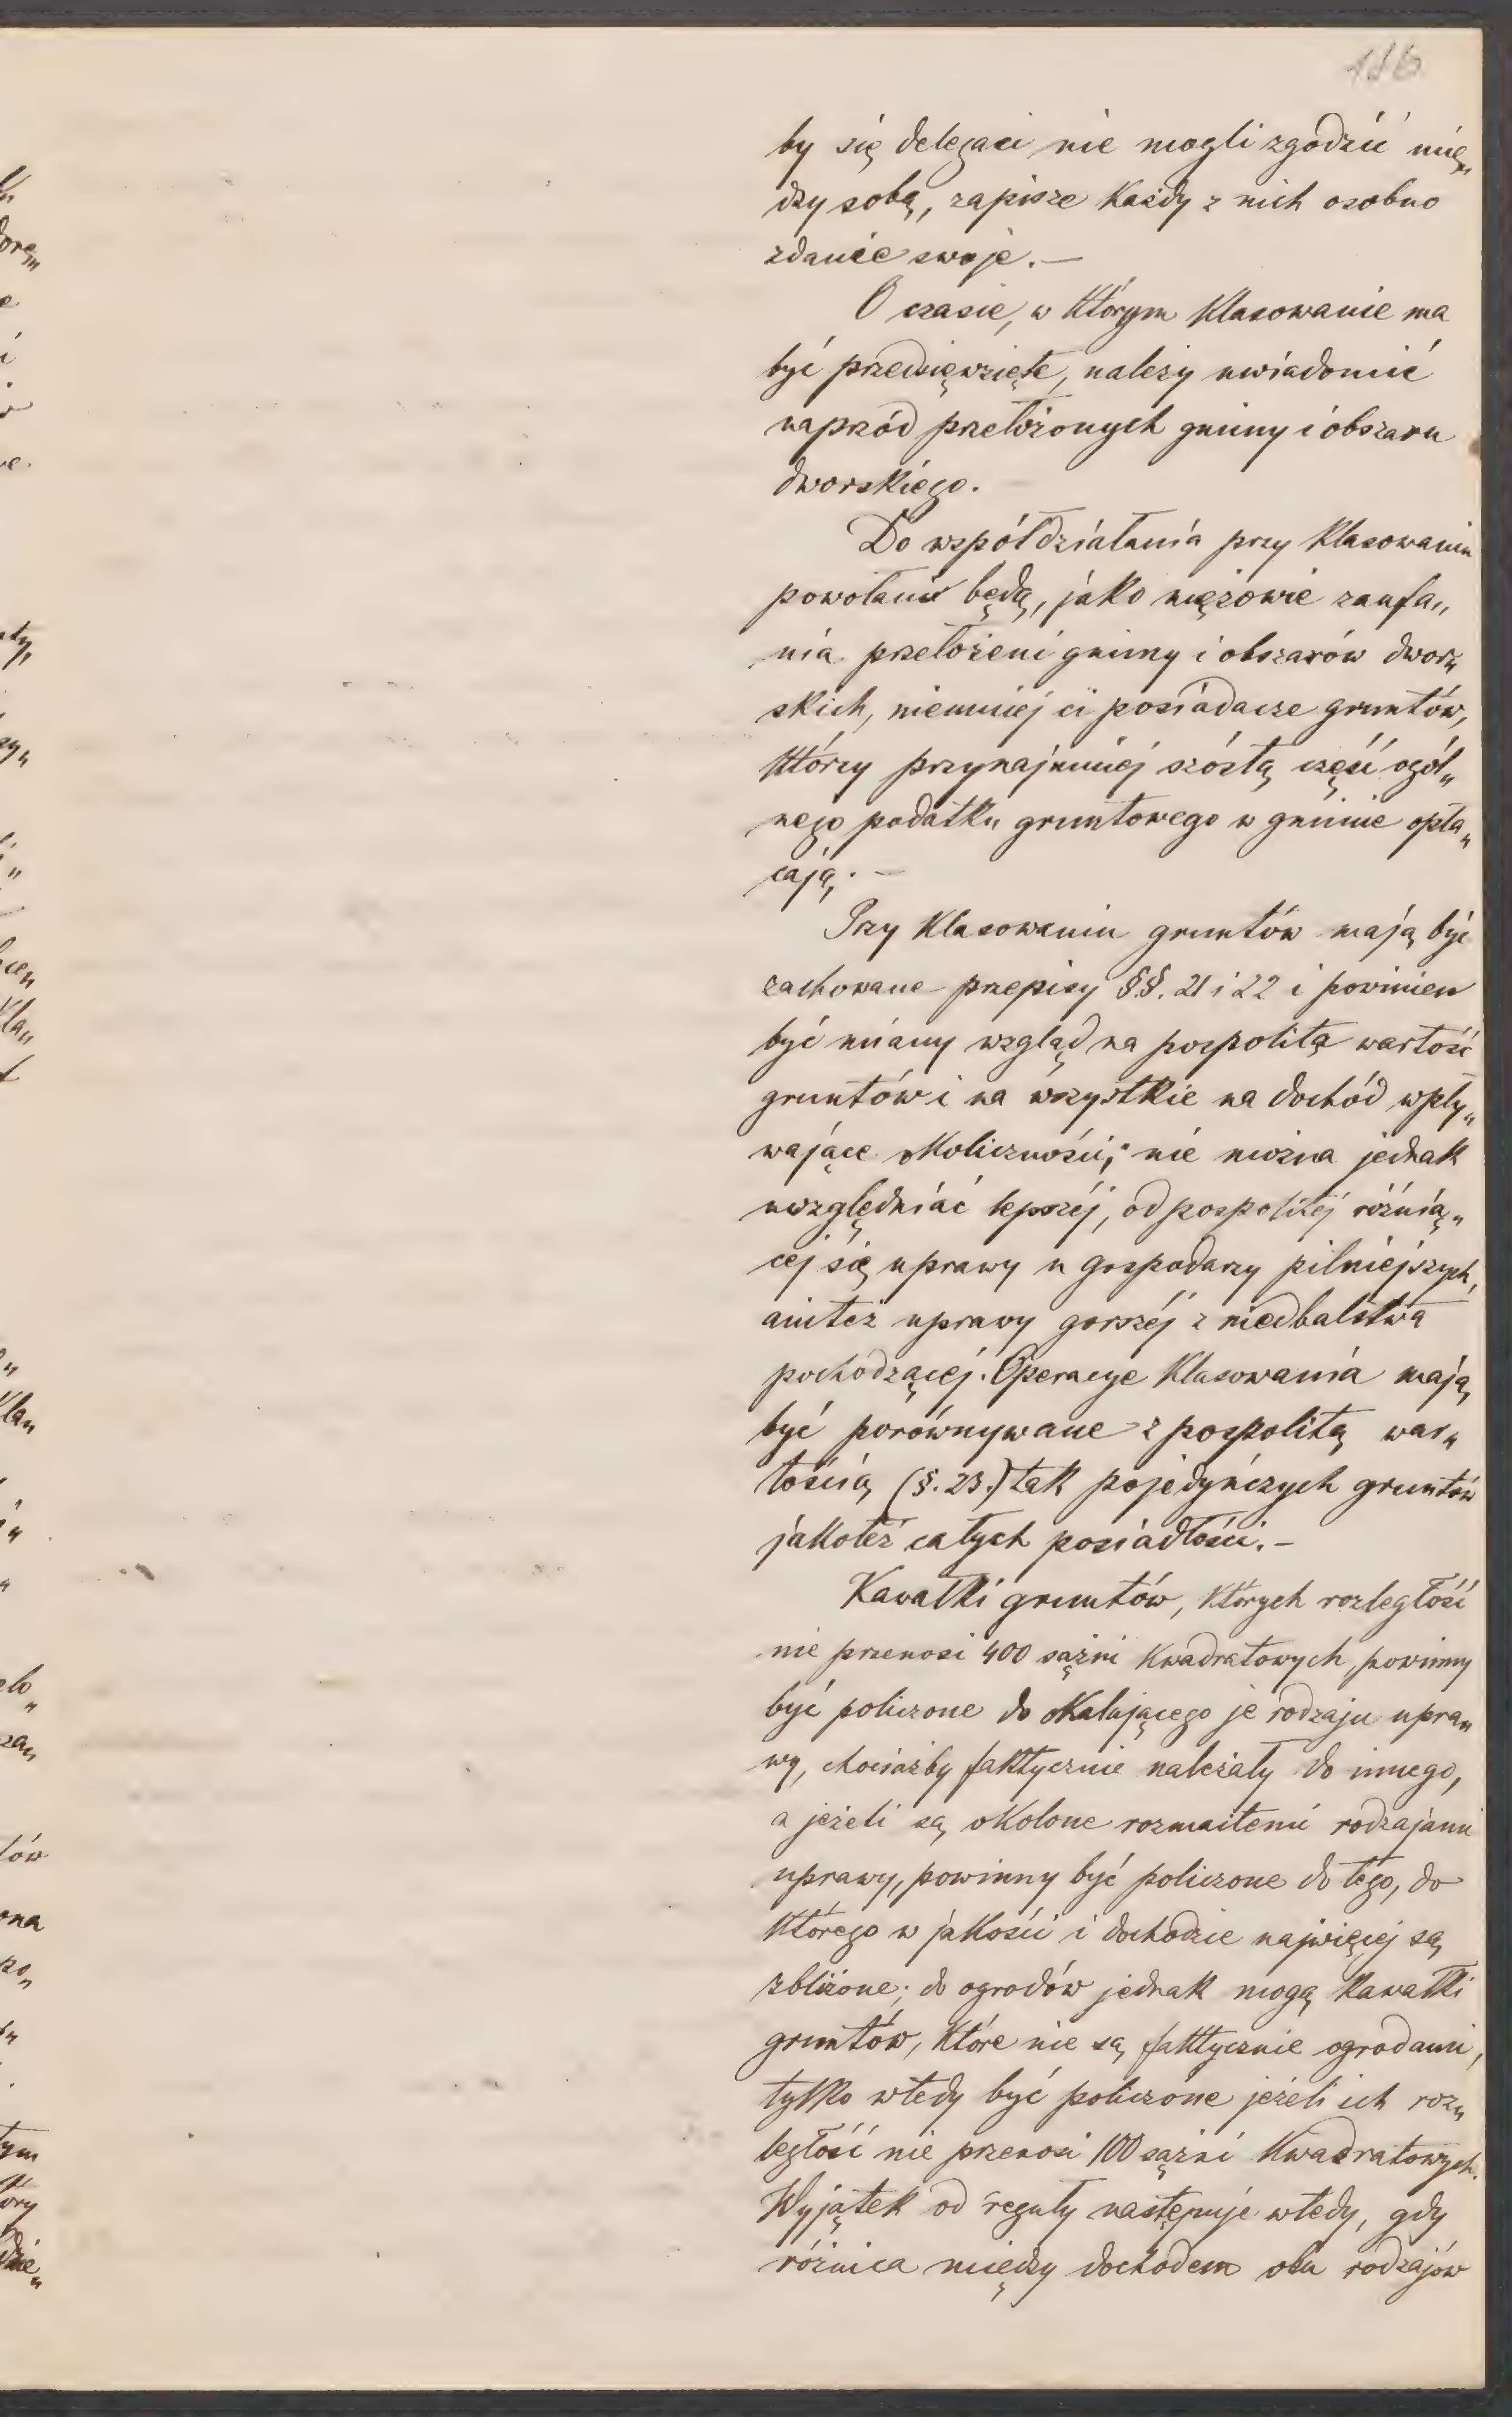 186
by się delegaci nie mogli zgodzić mię„
dzy sobą, zapisze każdy z nich osobno
zdanie swoje.—
O czasie, w którym klasowanie ma
być przedsięwzięte, należy uwiadomić
naprzód przełożonych gminy i obszaru
dworskiego.
Do współdziałania przy klasowaniu
powołani będą, jako mężowie zaufa„
nia przełożeni gminy i obszarów dwor„
skich, niemniej ci posiadacze gruntów,
którzy przynajmniej szóstą część ogól„
nego podatku gruntowego w gminie opła„
cają.—
Przy klasowaniu gruntów mają być
zachowane przepisy §§. 21 i 22 i powinien
być miany wzgląd na pospolitą wartość
gruntów i na wszystkie na dochód wpły„
wające okoliczności; nie można jednak
uwzględniać lepszéj, od pospolitéj różnią„
cej się uprawy u gospodarzy pilniejszych,
aniteż uprawy gorszéj z niedbalstwa
pochodzącéj. Operacye klasowania mają
być porównywane z pospolitą war„
tością (§. 23.) tak pojedyńczych gruntów
jakoteż całych posiadłości.—
Kawałki gruntów, których rozległość
nie przenosi 400 sążni kwadratowych, powinny
być policzone do okalającego je rodzaju upra„
wy, chociażby faktycznie należały do innego,
a jeżeli są okolone rozmaitemi rodzajami
uprawy, powinny być policzone do tego, do
którego w jakości i dochodzie najwięcej są
zbliżone; do ogrodów jednak mogą kawałki
gruntów, które nie są faktycznie ogrodami,
tylko wtedy być policzone jeżeli ich roz„
ległość nie przenosi 100 sążni kwadratowych.
Wyjątek od reguły następuje wtedy, gdy
różnica między dochodem obu rodzajów